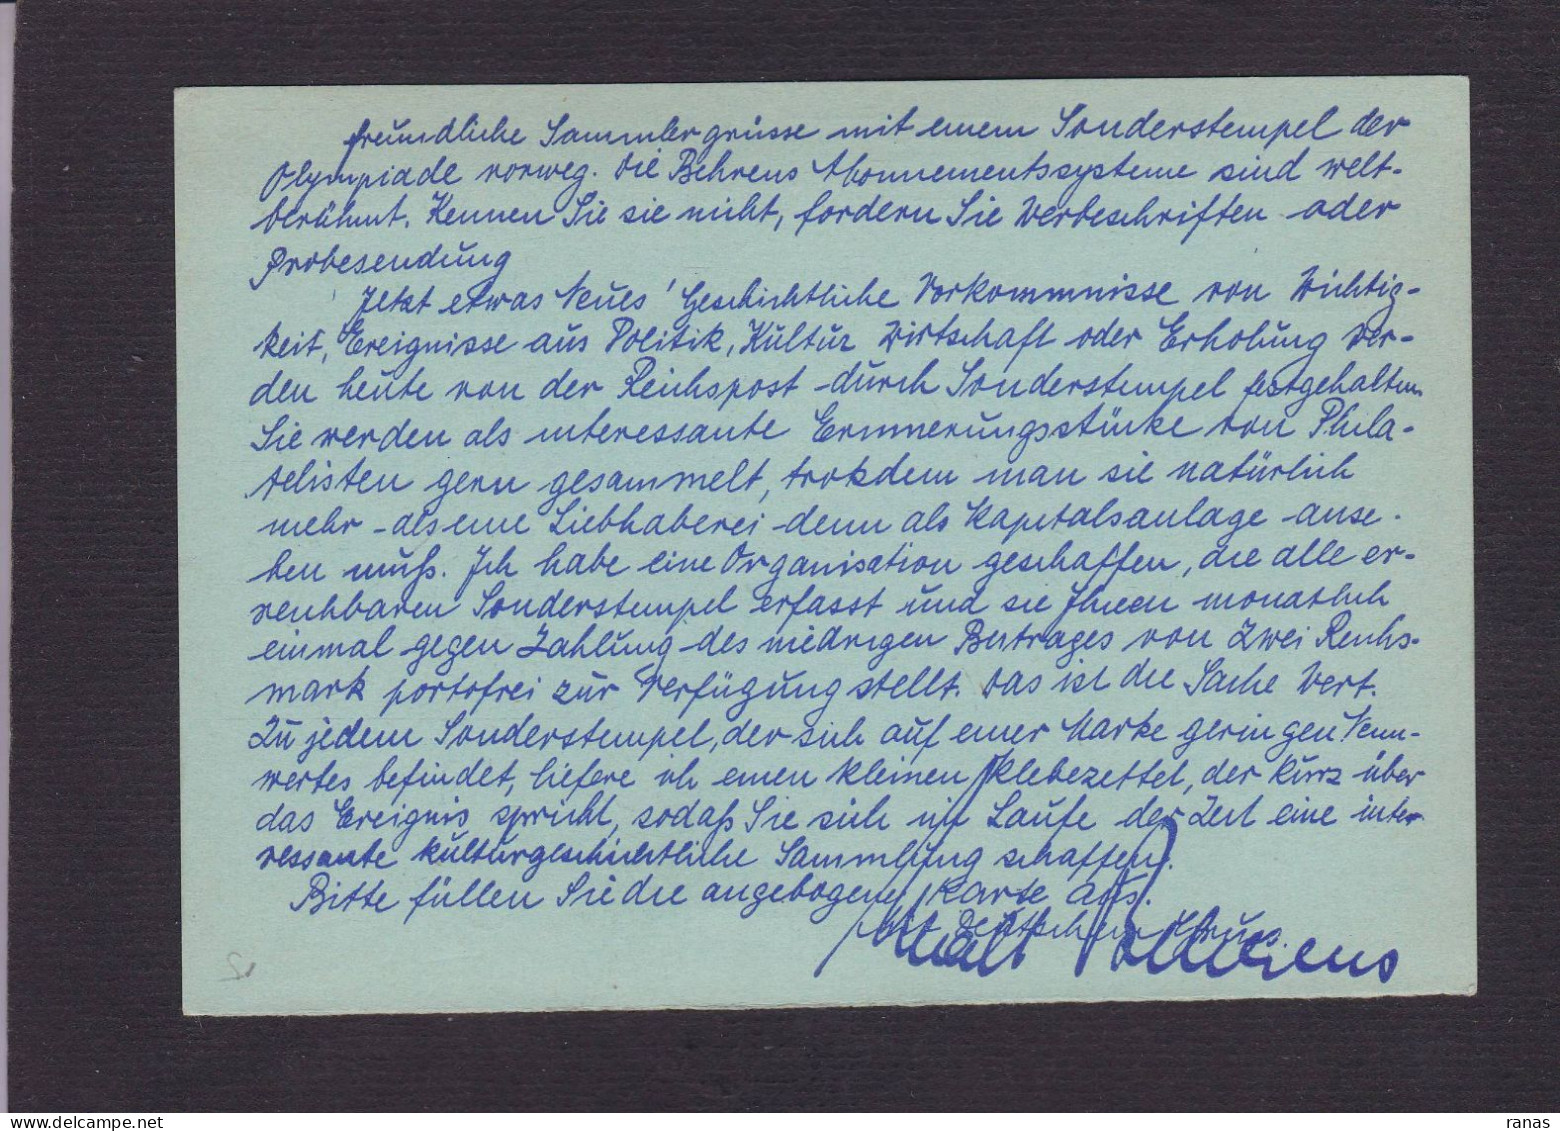 freundliche Sammlergrüsse mit einem Sonderstempel der
Olympiade vorweg. Die Behrens Abonnementssysteme sind welt-
berühmt. Kennen Sie sie nicht, fordern Sie Werbeschriften oder
Probesendung
Jetzt etwas Neues! Geschichtliche Vorkommnisse von Wichtig-
keit, Ereignisse aus Politik, Kultur Wirtschaft oder Erholung wer-
den heute von der Reichspost durch Sonderstempel festgehalten
Sie werden als interessante Erinnerungsstücke von Phila-
telisten gern gesammelt, trotzdem man sie natürlich
mehr als eine Liebhaberei denn als Kapitalsanlage anse-
hen muß. Ich habe eine Organisation geschaffen, die alle er-
reichbaren Sonderstempel erfasst und sie Ihnen monatlich
einmal gegen Zahlung des niedrigen Beitrages von zwei Reichs-
mark portofrei zur Verfügung stellt. Das ist die Sache wert.
Zu jedem Sonderstempel, der sich auf einer Marke geringen Nenn-
wertes befindet, liefere ich einen kleinen Klebezettel, der kurz über
das Ereignis spricht, sodaß Sie sich im Laufe der Zeit eine inter
ressante kulturgeschichtliche Sammlung schaffen.
Bitte füllen Sie die angebogene Karte aus.
Mit Deutschem Gruss.
Walt Behrens
ranas